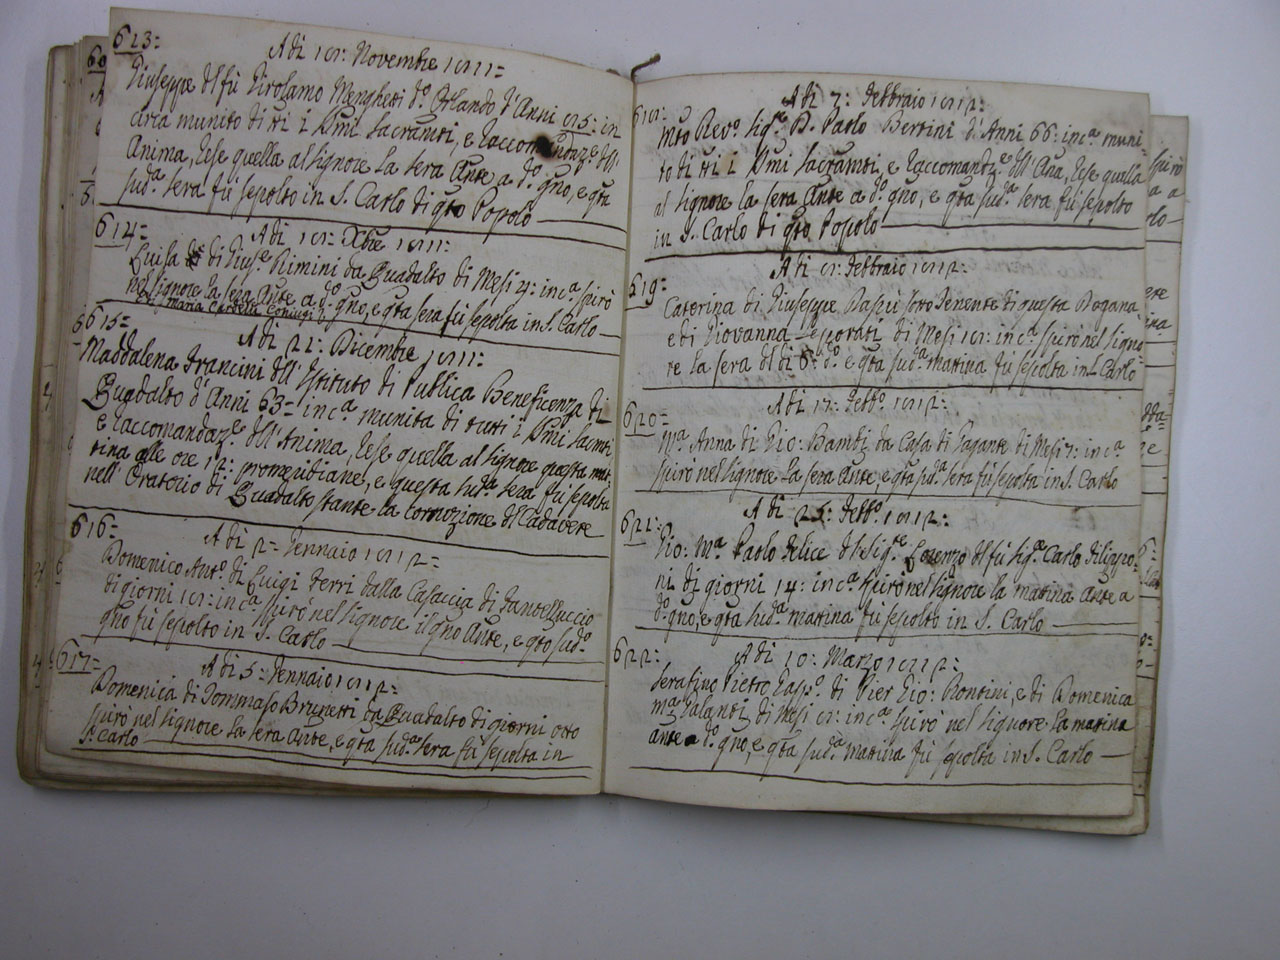 613:
A di 18: Novembre 1811=
Giuseppe del fù Girolamo Menghetti do. Orlando d'Anni 85: in
circa munito di tti i SSmi Sacramti, e raccomandaze. dell'
Anima, rese quella al Signore la sera ante a do. gno, e qta
suda. sera fù sepolto in S. Carlo di qto Popolo
614=
A di 18: Xbre 1811:
Luisa di Giuse. Rimini da Guadalto di Mesi 4: inca. spirò
nel Signore la sera ante a do. gno, e qta sera fù sepolta in S. Carlo
615=
A di 21: Dicembre 1811:
Maddalena Francini dell'Istituto di Publica Beneficenza di
Guadalto d'Anni 63= inca. munita di tutti i SSmi Sacmti
e raccomandaze. dell'Anima, rese quella al Signore questa mat-
tina alle ore 12: promeridiane, e questa suda. sera fù sepolta
nell'Oratorio di Guadalto stante la corruzione del Cadavere
616=
A di 2= Gennaio 1812=
Domenico Anto. di Luigi Ferri dalla Casaccia di
di giorni 18: inca. spirò nel Signore il gno ante, e qto sudo.
gno fù sepolto in S. Carlo
617=
A di 5: Gennaio 1812=
Domenica di Tommaso Brunetti da Guadalto di giorni otto
spirò nel Signore la sera ante, e qta suda. sera fù sepolta in
S. Carlo
618:
A di 7: Febbraio 1812:
Mto Revo. Sige. D. Paolo Bertini d'Anni 66: inca. muni-
to di tti i SSmi Sacramti, e raccomandze. dell'Ana, rese quella
al Signore la sera ante a do. gno, e qta suda. sera fù sepolto
in S. Carlo di qto Popolo
619=
A di 8: Febbraio 1812:
Caterina di Giuseppe sotto Tenente di questa Dogana
e di Giovanna di Mesi 18: inca. spirò nel Signo-
re la sera del di 6: do. e qta suda. mattina fù sepolta in S. Carlo
620=
A di 17: Febbo. 1812:
Ma. Anna di Gio: Bambi da Casa di Pagante di Mesi 7: inca.
spirò nel Signore la sera ante, e qta suda. sera fù sepolta in S. Carlo
621:
A di 25: Febbo. 1812:
Gio: Ma. Paolo Felice del Sige. Lorenzo del fù Sige. Carlo Filippo-
ni di giorni 14: inca. spirò nel Signore la mattina ante a
do. gno, e qta suda. mattina fù sepolto in S. Carlo
622:
A di 10: Marzo 1812:
Serafino Pietro Gaspo. di Pier Gio: Rontini, e di Domenica
Ma. Galanti di Mesi 8: inca. spirò nel Signore la mattina
ante a do. gno, e qta suda. mattina fù sepolta in S. Carlo